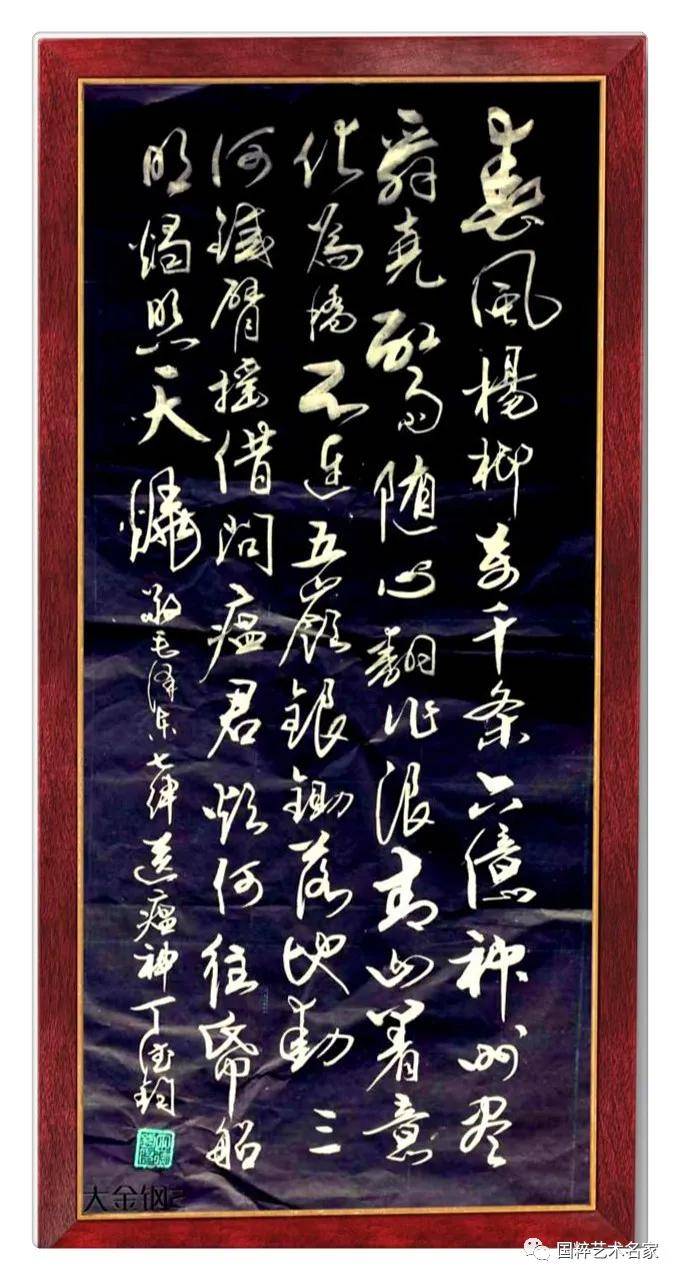 春風楊柳万千条六億神州尽
舜堯紅雨随心翻作浪青山着意
化為橋天连五嶺銀鋤落地動三
河鐵臂摇借問瘟君欲何往帋船
明燭照天燒 毛泽东七律送瘟神 丁德鈞
大金钢
国粹艺术名家